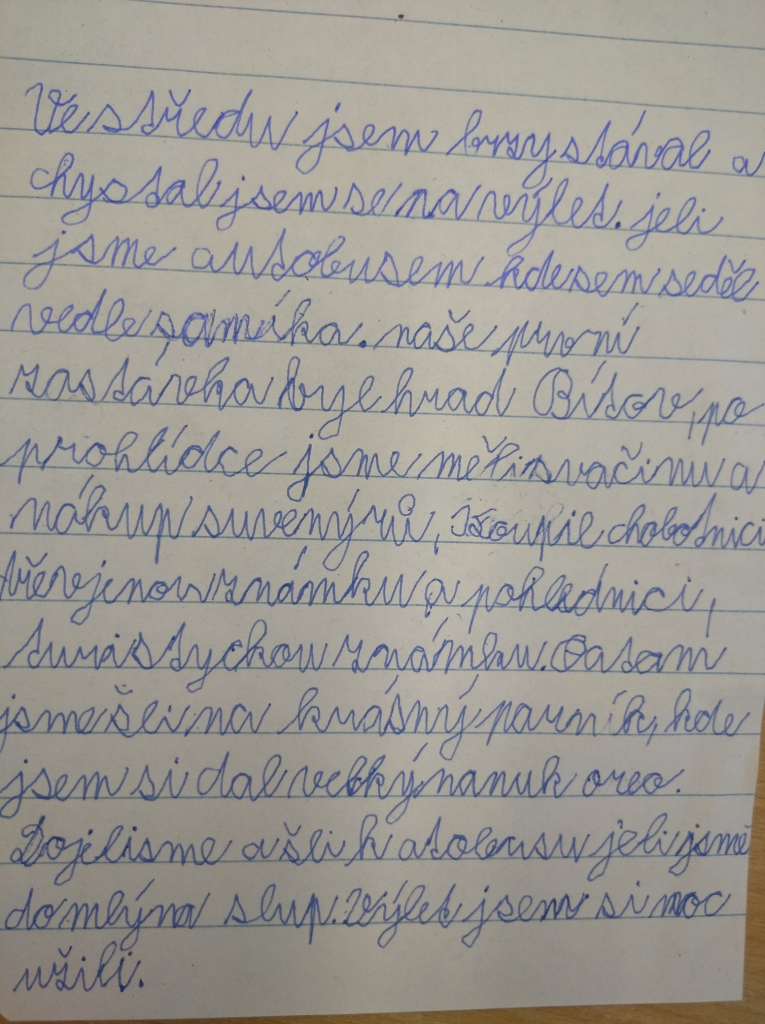 Ve středu jsem brzy stával a
chystal jsem se na výlet. jeli
jsme autobusem kde sem seděl
vedle samíka. naše první
zastávka byl hrad Bítov, po
prohlídce jsme měli svačinu a
nákup suvenýrů, Koupil chobotnici
známku a pohlednici,
turistyckou známku. Potom
jsme šli na krásný parník, kde
jsem si dal velký nanuk oreo.
Dojeli sme a šli k atobusu jeli jsmě
do mlýna slup. Výlet jsem si moc
užili.